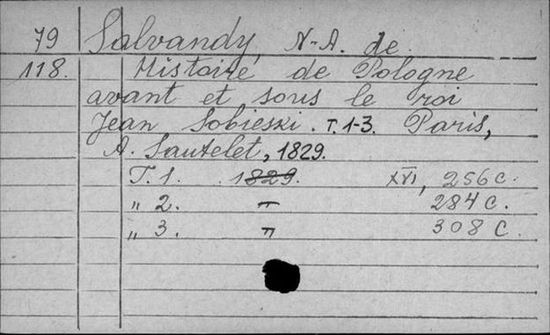 79 Salvandy, N-A. de.
118. Histoire de Pologne
avant et sous le roi
Jean Sobieski. T. 1-3. Paris,
A. Sautelet, 1829.
T. 1. 1829. XVI, 256 c.
„ 2. 〃 284 c.
„ 3. 〃 308 c.